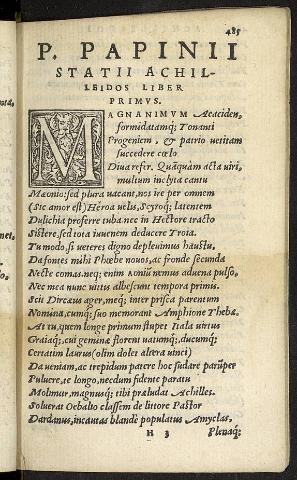 485
P. PAPINII
STATII ACHIL-
LEIDOS LIBER
PRIMVS.
MAGNANIMVM Aeaciden,
formidatamq; Tonanti
Progeniem, & patrio uetitam
succedere cœlo
Diua refer. Quãquàm acta uiri,
multum inclyta cantu
Mæonio: sed plura uacant, nos ire per omnem
(Sic amor est) Heroa uelis, Scyroq; latentem
Dulichia proferre tuba: nec in Hectore tracto
Sistere, sed tota iuuenem deducere Troia.
Tu modo, si ueteres digno depleuimus haustu,
Da fontes mihi Phœbe nouos, ac fronde secunda
Necte comas. neq; enim Aoniũ nemus aduena pulso,
Nec mea nunc uittis albescunt tempora primis.
Scit Dircæus ager, meq; inter prisca parentum
Nomina, cumq; suo memorant Amphione Thebæ.
At tu, quem longe primum stupet Itala uirtus
Graiaq;, cui geminæ florent uatumq;, ducumq;
Certatim laurus (olim dolet altera uinci)
Da ueniam, ac trepidum patere hoc sudare parũper
Puluere, te longo, necdum fidente paratu
Molimur, magnusq; tibi præludat Achilles.
Soluerat Oebalio classem de littore Pastor
Dardanus, incautas blande populatus Amyclas,
H 3
Plenaq;